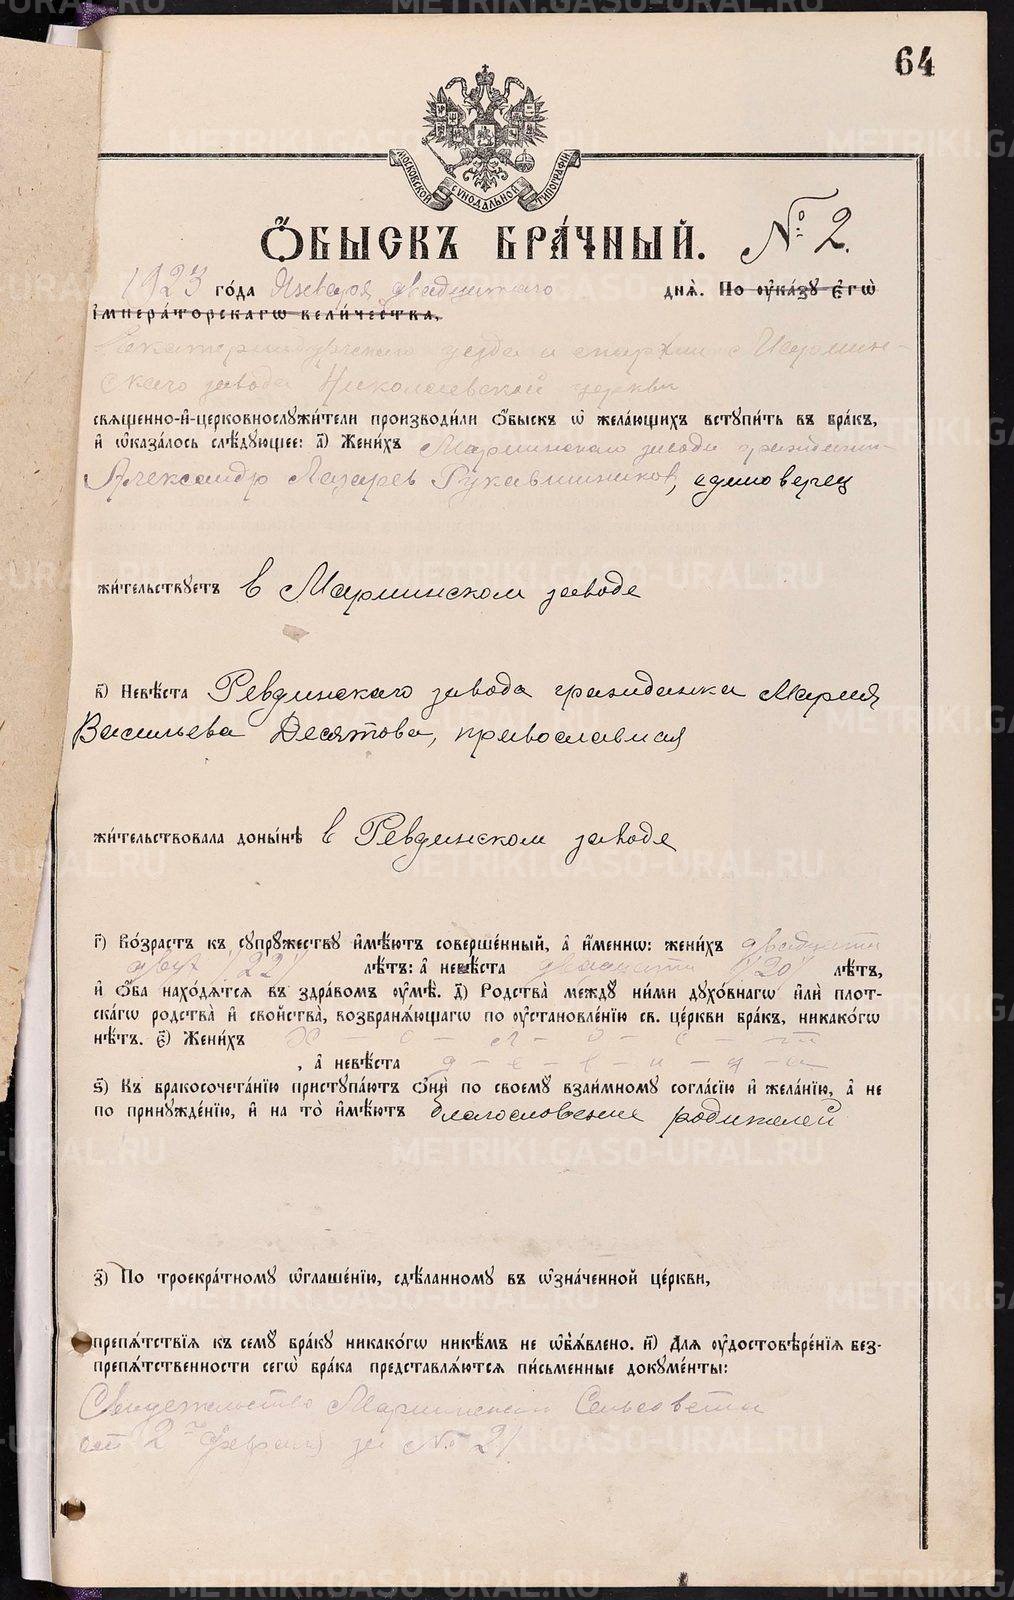 64
МОСКОВСКОЙ СѴНОДАЛЬНОЙ ТИПОГРАФІИ
Ѻ҆БЫСКЪ БРА́ЧНЫЙ. № 2.
1923 го́да Января двадцатаго днѧ̀. По ᲂу҆ка́зꙋ є҆гѡ̀
і҆мпера́торскагѡ вели́чества,
Екатеринбургскаго уезда и епархии, Мариин-
скаго завода Николаевской церкви
свѧщенно-и҆-церковнослꙋжи́тели производи́ли ѻ҆́быскъ ѡ҆ жела́ющихъ встꙋпи́ть въ бра́къ,
и҆ ѡ҆каза́лось слѣ́дꙋющее: а҃) Жени́хъ Мариинскаго завода гражданин
Александр Лазарев Рукавишников, единоверец
жи́тельствꙋетъ в Мариинском заводе
в҃) Невѣ́ста Ревдинскаго завода гражданка Мария
Васильева Десятова, православная
жи́тельствовала доны́нѣ в Ревдинском заводе
г҃) Во́зрастъ къ сꙋпрꙋ́жествꙋ и҆мѣ́ютъ соверше́нный, а҆ и҆́меннѡ: жени́хъ двадцати
двух /22/ лѣ́тъ: а҆ невѣ́ста двадцати /20/ лѣ́тъ,
и҆ ѻ҆́ба нахо́дѧтсѧ въ здра́вомъ ᲂу҆мѣ̀. д҃) Родства̀ междꙋ ни́ми дꙋхо́внагѡ и҆лѝ плот-
ска́гѡ родства̀ и҆ сво́йства̀, возбранѧ́ющагѡ по ᲂу҆становле́нїю св. це́ркви бра́къ, никако́гѡ
нѣ́тъ. є҃) Жени́хъ х - о - л - о - с - т
, а҆ невѣ́ста д - е - в - и - ц - а
ѕ҃) Къ бракосочета́нїю пристꙋпа́ютъ ѻ҆нѝ по своемꙋ̀ взаи́мномꙋ согла́сїю и҆ жела́нїю, а҆ не
по принꙋжде́нїю, и҆ на то̀ и҆мѣ́ютъ благословение родителей
з҃) По троекра́тномꙋ ѡ҆глаше́нїю, сдѣ́ланномꙋ въ ѡ҆зна́ченной це́ркви,
препѧ́тствїѧ къ семꙋ̀ бра́кꙋ никако́гѡ никѣ́мъ не ѡ҆б̾ѧ́влено. и҃) Длѧ ᲂу҆достовѣре́нїѧ без-
препѧ́тственности сегѡ̀ бра́ка представлѧ́ютсѧ пи́сьменные докꙋме́нты:
Свидетельство Мариинскаго Сельсовета
от 2го февраля за № 21